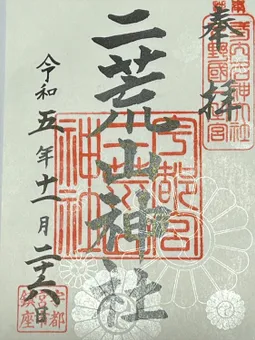 奉拝
二荒山神社
令和五年十一月二十六日
宇都宮
二荒山
神社
下野國一之宮
宇都宮市
鎮座